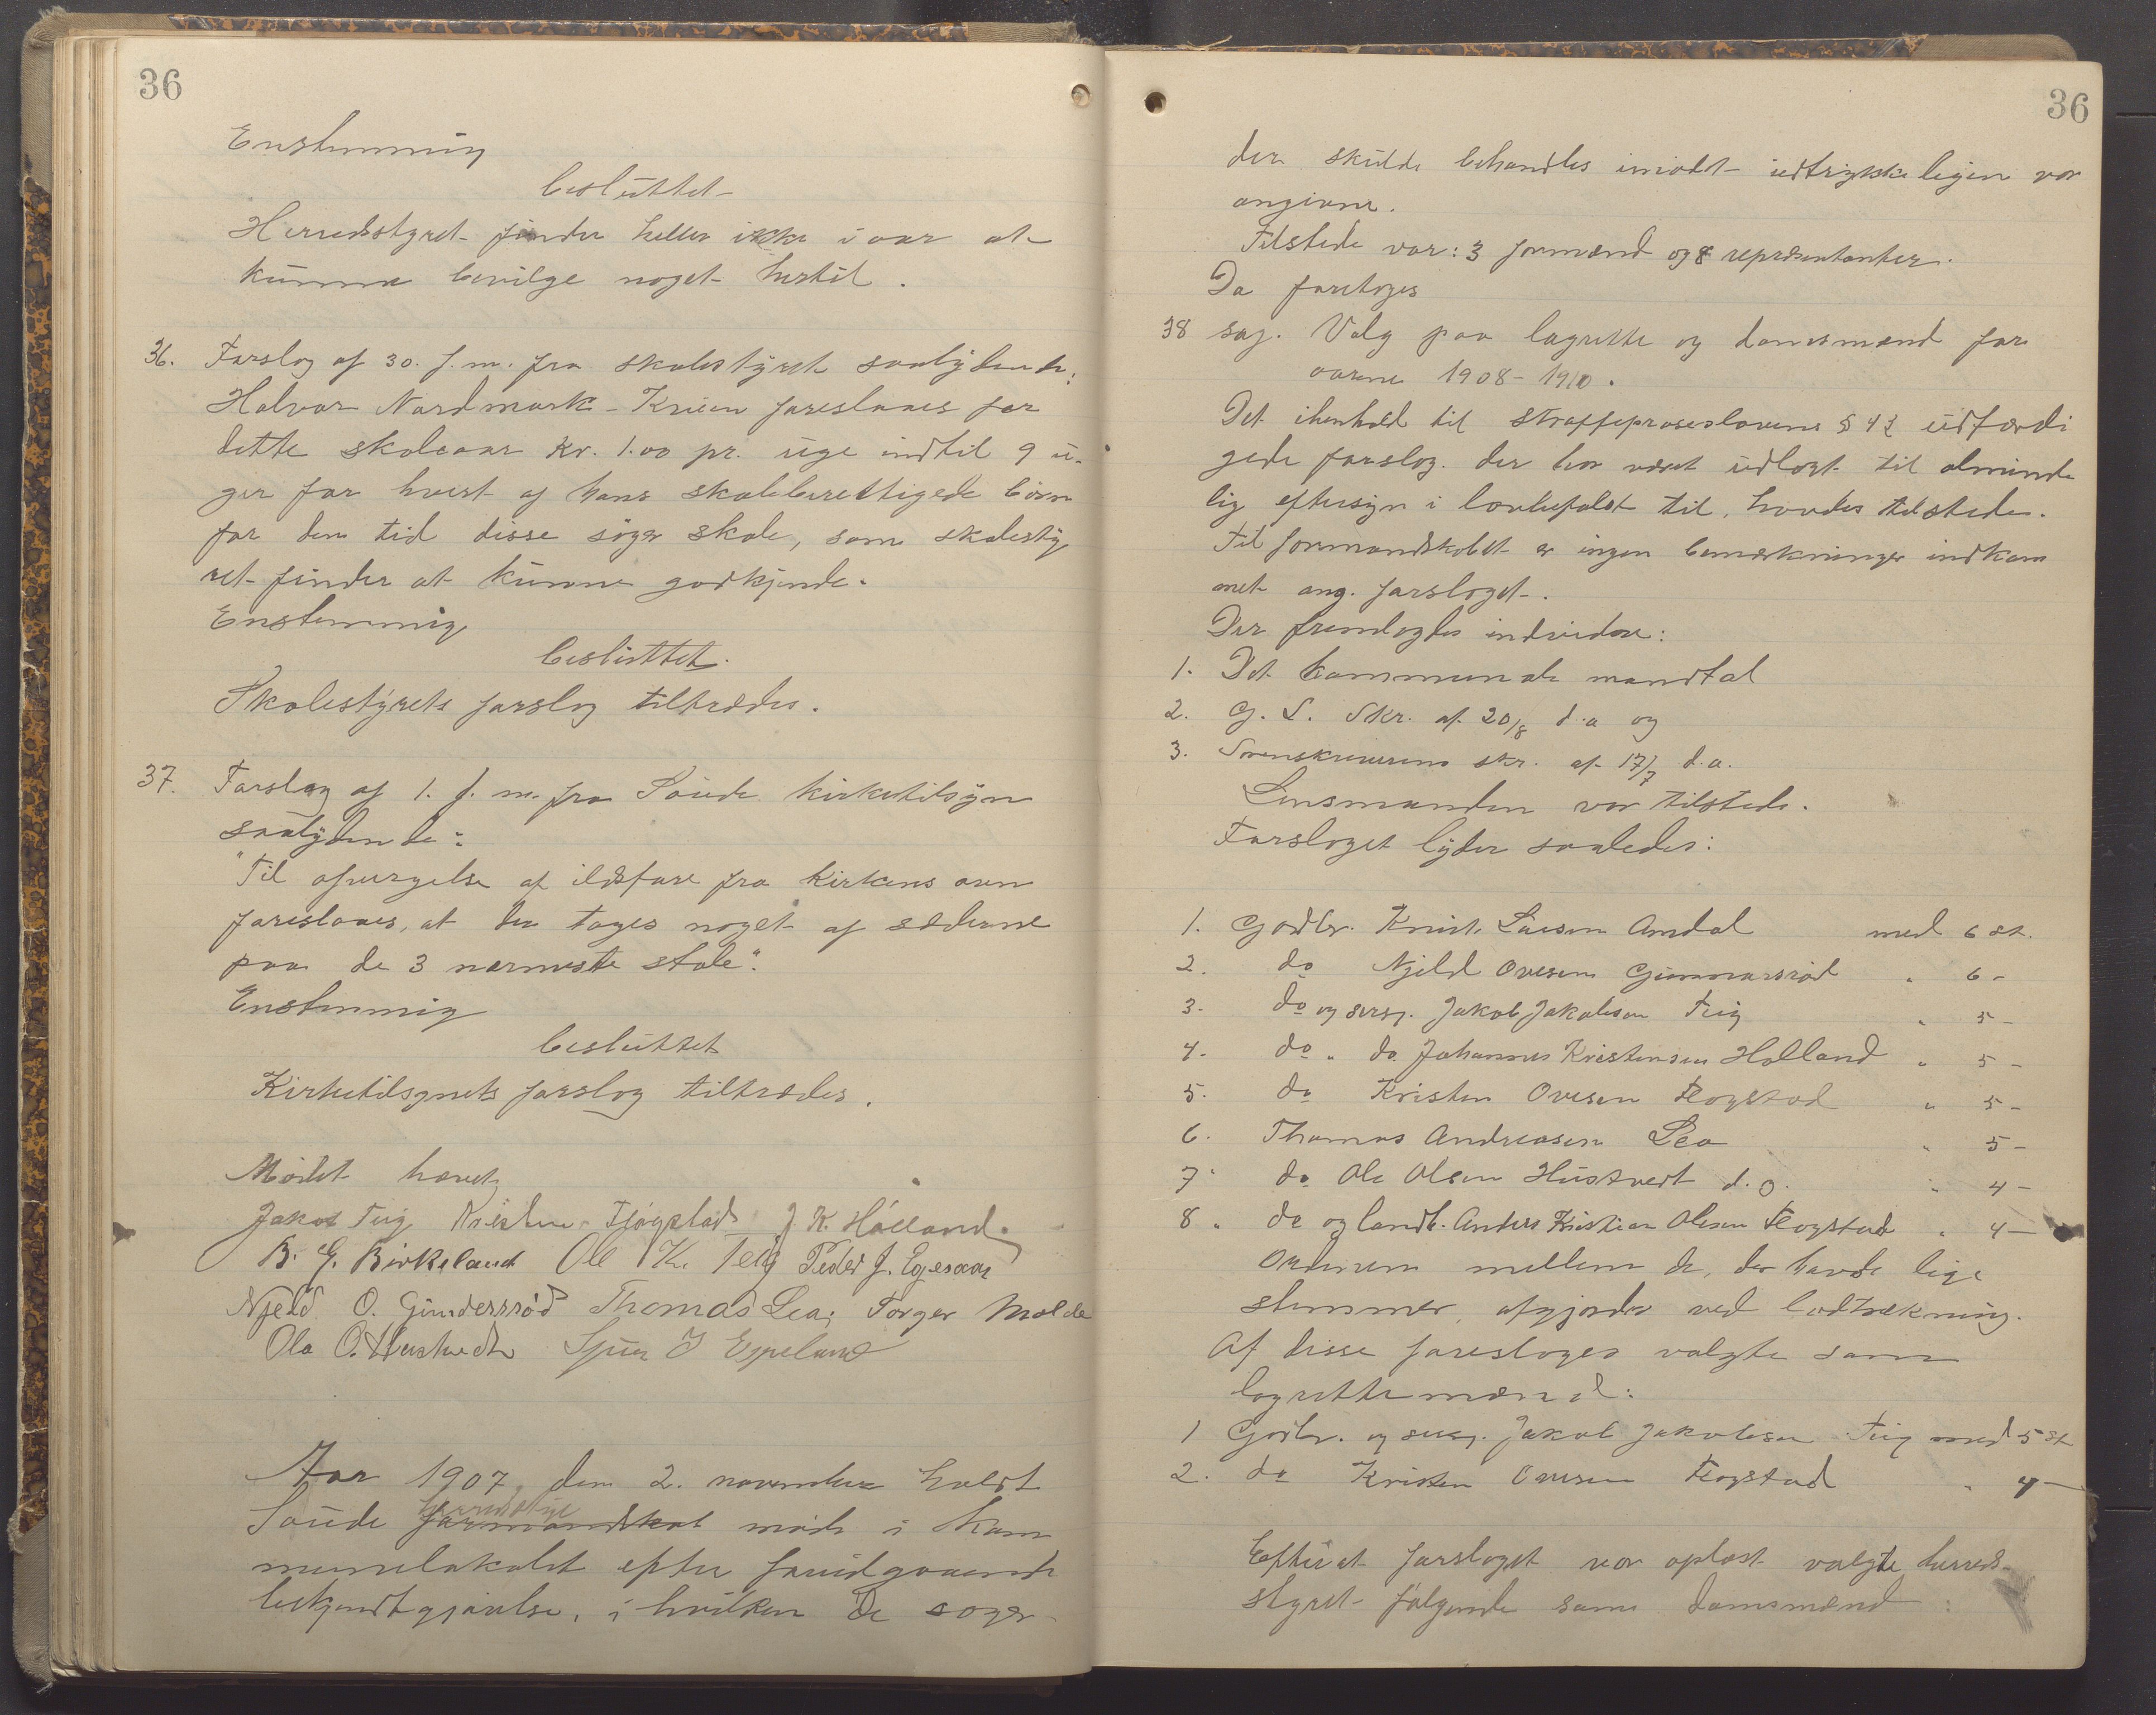 36
Enstemmig
besluttet
Herredsstyret finder heller ikke i aar at
kunne bevilge noget hertil.
36. Forslag af 30. f.m. fra skolestyret saalydende:
Halvor Nordmark-Kruen foreslaaes for
dette skoleaar Kr. 1.00 pr. uge indtil 9 u-
ger for hvert af hans skoleberettigede børn
for den tid disse søger skole, som skolesty
ret finder at kunne godkjende.
Enstemmig
besluttet.
Skolestyrets forslag tiltrædes.
37. Forslag af 1. f. m. fra Soude kirketilsyn
saalydende:
"Til afvergelse af ildsfare fra kirkens ovn
foreslaaes, at der tages noget af sæderne
paa de 3 nærmeste stole".
Enstemmig
besluttet
Kirketilsynets forslag tiltrædes.
Mødet hævet
Jakob Teig Kristen Fjøgstad J. K. Hålland.
B. G. Birkeland Ole K. Teig Peder J. Egesaar
Njeld O. Gundersrød Thomas Lea, Torger Molde
Ola O. Hustvedt J Eppeland
Aar 1907, den 2. november holdt
herredstyre
Soude formandskab møde i kom
munelokalet efter forudgaaende
bekjendtgjørelse, i hvilken de sager
36
der skulde behandles imødt udtrykkeligen var
angivne.
Tilstede var: 3 formænd og 8 repræsentanter.
Da foretoges
38 sag. Valg paa lagrette og domsmænd for
aarene 1908-1910.
Det ihenhold til straffeproseslovens § 42 udfærdi
gede forslag. der har været udlagt til alminde
lig eftersyn i lovbefalet tid, havdes tilstede.
Til formandskabet er ingen bemærkninger indkom
met ang. forslaget.
Der fremlagdes indvidere:
1. Det kommunale mandtal
2. G. S. Skr. af 20/8 d.a og
3. Sorenskriverens skr. af 17/7 d.a.
Lensmanden var tilstede.
Forslaget lyder saaledes:
1. Gaardbr. Knut Larsen Amdal med 6 st.
2. do Njeld Ovesen Gunnarsrød " 6 -
3. do og sersj. Jakob Jakobsen Teig " 5 -
4. do " do Johannes Kristensen Holland " 5 -
5. do Kristen Ovesen Fløgstad " 5 -
6. Thomas Andreasen Lea " 5 -
7. do Ole Olsen Hustvedt d.o. " 4 -
8. do og landh. Anders Kristian Olsen Fløgstad " 4 -
Ordenen mellem de, der havde lige
stemmer, afgjordes ved lodtrækning.
Af disse foresloges valgte som
lagrettemænd:
1 Gaardbr. og sersj. Jakob Jakobsen Teig med 5 st
2. do Kristen Ovesen Fløgstad " 4 -
Efterat forslaget var oplæst valgte herreds-
styret følgende som domsmænd: